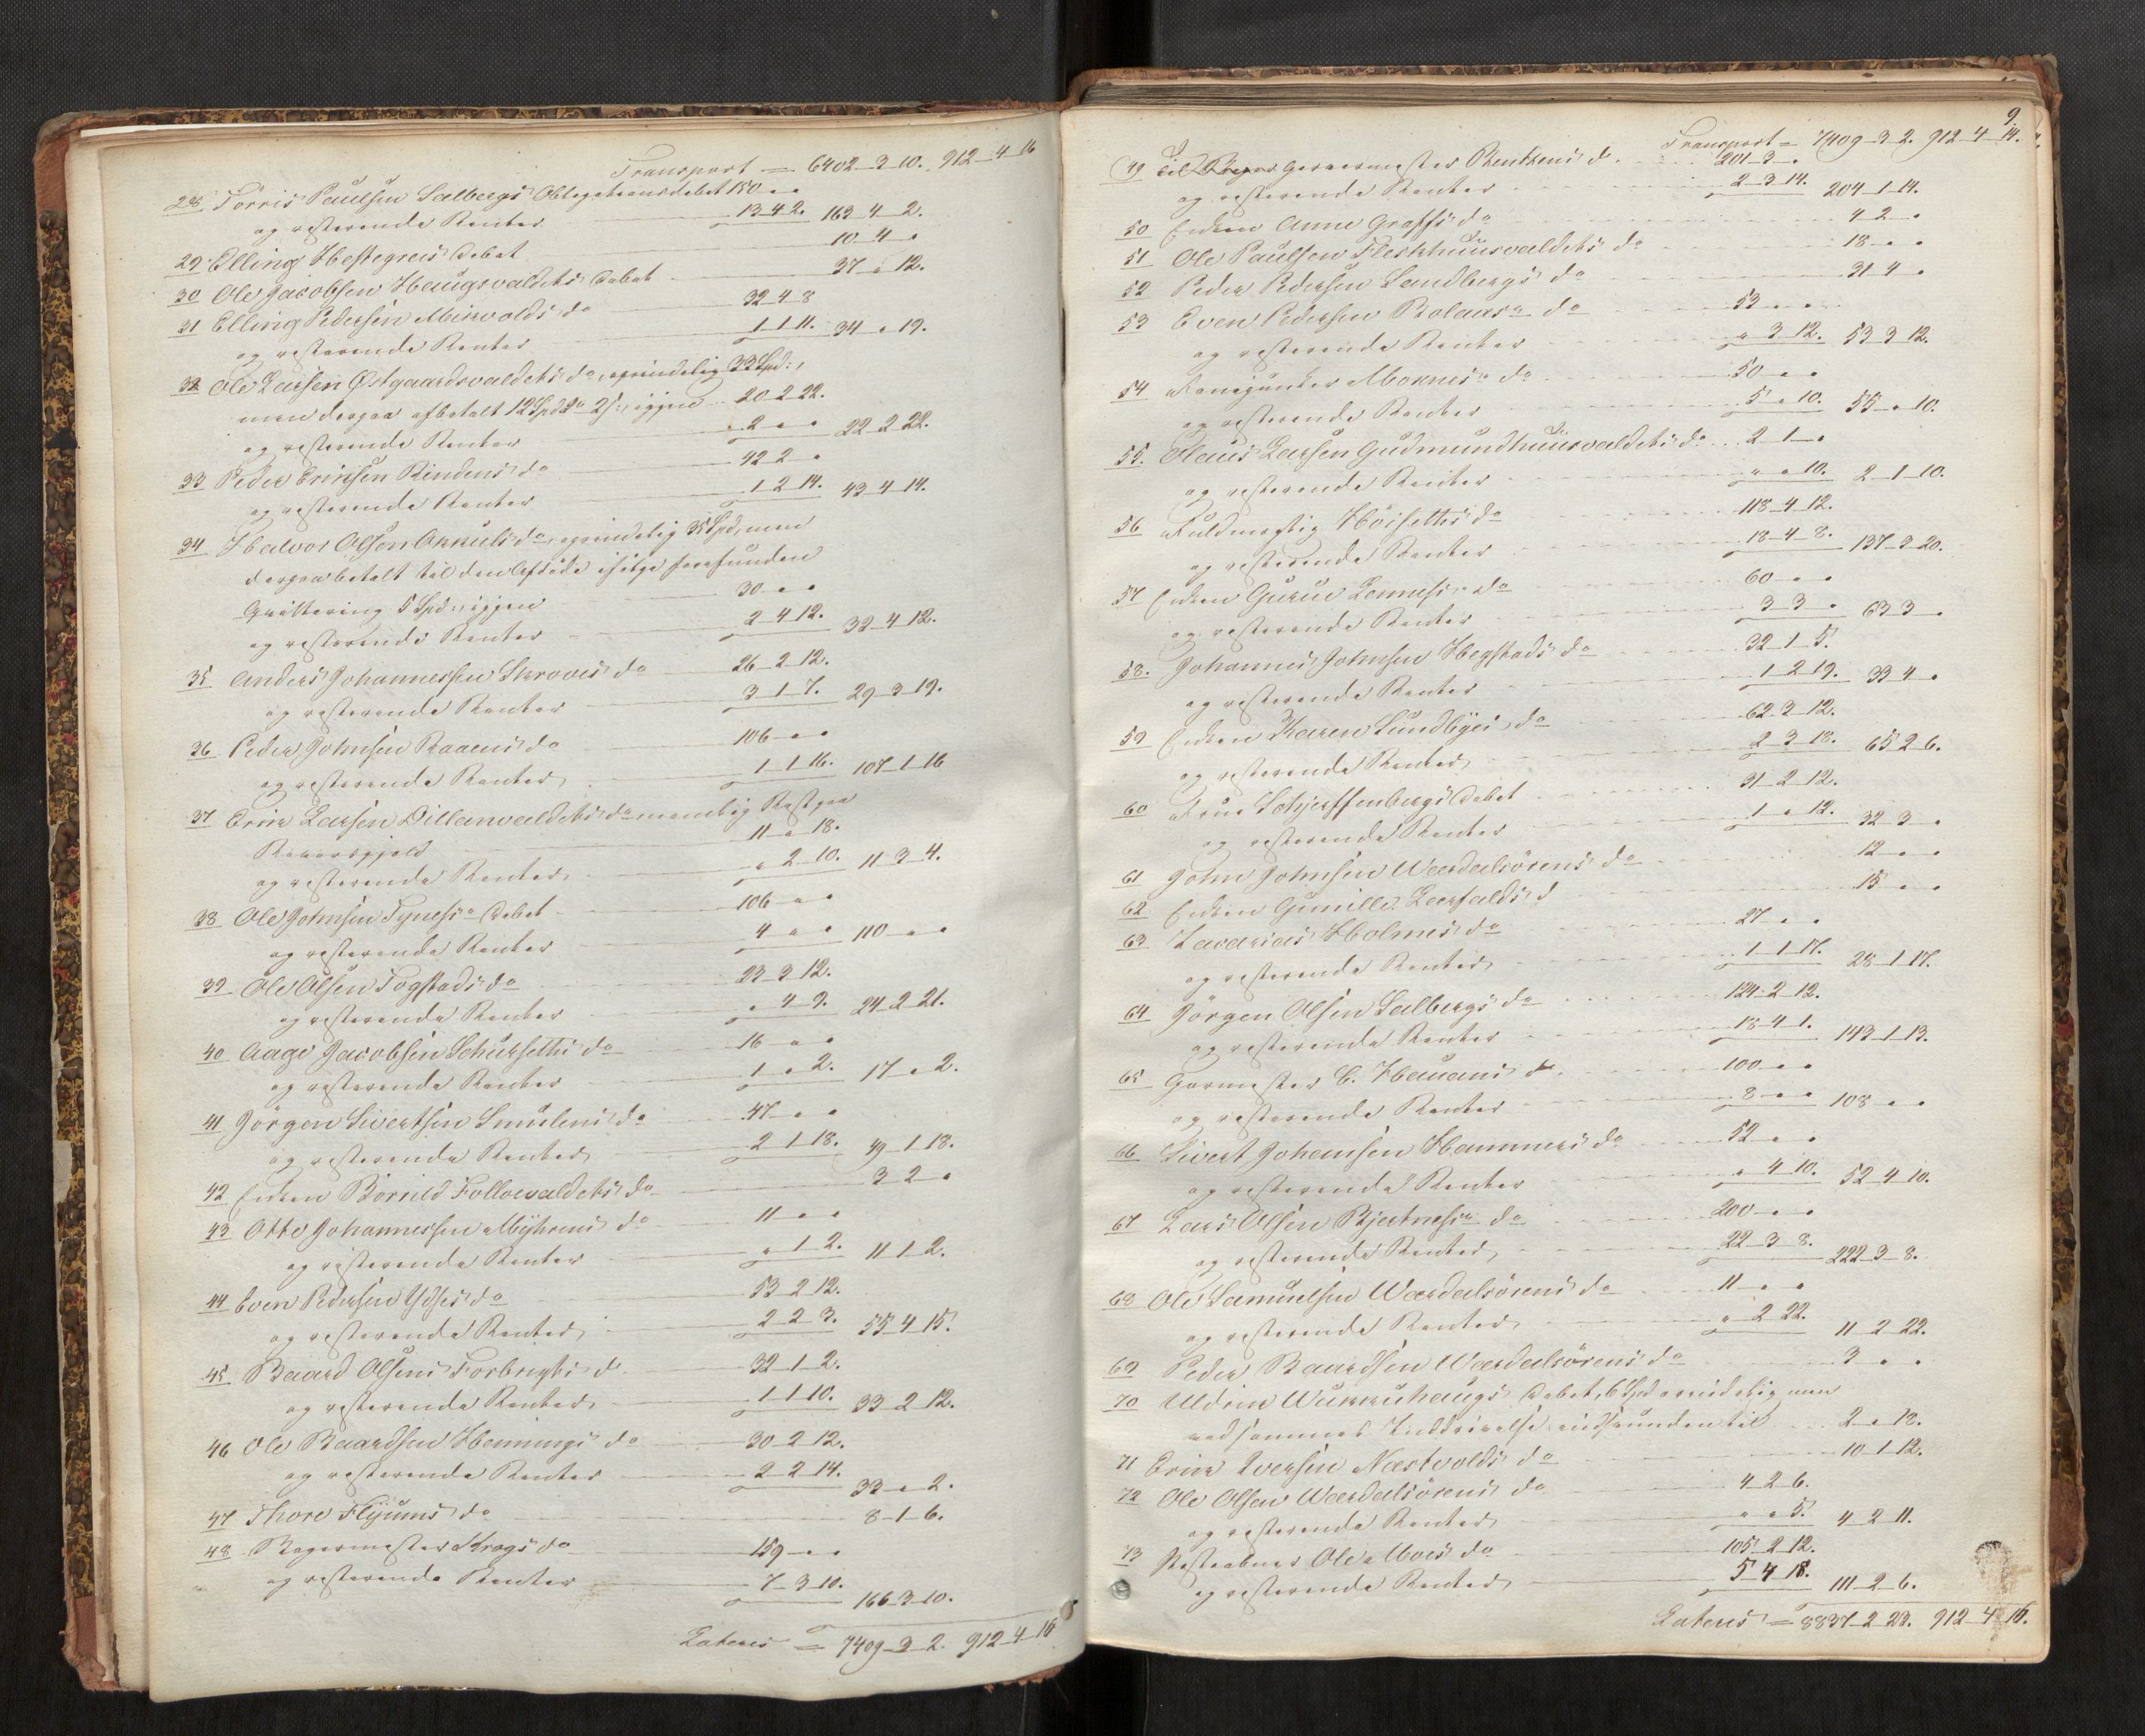 Transport = 6402-3-10. 912-4-16
28 Törris Paulsen Salbergs Obligationsdebet 150 " "
og resterende Renter 13-4-2. 163-4-2.
29 Elling Hestegreis Debet 10-4-"
30 Ole Jacobsen Haugsvaldets Debet 37-"-12.
31 Elling Pedersen Minvolds do 32-4-8
og resterende Renter 1-1-11. 34-"-19.
32 Ole Larsen Østgaardsvaldets do, oprindelig 33 Spd:,
men derpaa afbetalt 12 Spd 2 2 s:, igjen 20-2-22.
og resterende Renter 2-"-" 22-2-22.
33 Peder Ericksen Rindens do 42-2-"
og resterende Renter 1-2-14. 43-4-14.
34 Halvor Olsen Okkuls do, oprindelig 35 Spd, men
derpaa betalt til den Afdøde ifølge forefunden
Qvittering 5 Spd:, igjen 30-"-"
og resterende Renter 2-4-12. 32-4-12.
35 Anders Johannessen Skroves do 26-2-12.
og resterende Renter 3-1-7. 29-3-19.
36 Peder Johnsen Raaens do 106-"-"
og resterende Renter 1-1-16. 107-1-16
37 Erick Larsen Dillanvaldets do nemlig Rest paa
11-"-18.
og resterende Renter "-2-10. 11-3-4.
38 Ole Johnsen Tynes's Debet 106-"-"
og resterende Renter 4-"-" 110-"-"
39 Ole Olsen Fogstads do 23-3-12.
og resterende Renter "-4-9. 24-2-21.
40 Aage Jacobsen Schurseths do 16-"-"
og resterende Renter 1-"-2. 17-"-2.
41 Jörgen Sivertsen Smulens do 47-"-"
og resterende Renter 2-1-18. 49-1-18.
42 Enken Borrild Folloevaldets do 3-2-"
43 Otto Johannessen Myhrens do 11-"-"
og resterende Renter "-1-2. 11-1-2.
44 Even Pedersen Ydses do 53-2-12.
og resterende Renter 2-2-3. 55-4-15.
45 Baard Olsens Forbregts do 32-1-2.
og resterende Renter 1-1-10. 33-2-12.
46 Ole Baardsen Hennings do 30-2-12.
og resterende Renter 2-2-14. 33-"-2.
47 Thore Flyums do 8-1-6.
48 Bagermester Krogs do 159-"-"
og resterende Renter 7-3-10. 166-3-10.
Lateris = 7409-3-2. 912-4-16
9.
Transport = 7409-3-2. 912-4-16.
49 Garvermester Bentzens do 201-3-"
og resterende Renter 2-3-14. 204-1-14.
50 Enken Anne Graffs do 4-2-"
51 Ole Paulsen Fleskhuusvaldets do 18-"-"
52 Peder Pedersen Landbergs do 31-4-"
53 Even Pedersen Bolaas's do 53-"-"
og resterende Renter "-3-12. 53-3-12.
54 Fanejunker Monnes's do 50-"-"
og resterende Renter 5-"-10. 55-"-10.
55. Olaus Larsen Gudmundhuusvaldets do 2-1-"
og resterende Renter "-"-10. 2-1-10.
56 Fuldmægtig Höiseths do 118-4-12.
og resterende Renter 18-4-8. 137-3-20.
57 Enken Guruе Lennes's do 60-"-"
og resterende Renter 3-3-" 63-3-"
58. Johannes Johnsen Hegstads do 32-1-5.
og resterende Renter 1-2-19. 33-4-"
59 Enken Karen Sundbyes do 62-3-12.
og resterende Renter 2-3-18. 65-2-6.
60 Frue Schjerffenbergs Debet 31-2-12.
og resterende Renter 1-"-12. 32-3-"
61 John Johnsen Wærdalsörens do 12-"-"
62 Enken Gunille Leerfalds d 15-"-"
63 Zacarias Holmes do 27-"-"
og resterende Renter 1-1-17. 28-1-17.
64 Jörgen Olsen Salbergs do 124-2-12.
og resterende Renter 18-4-1. 143-1-13.
65 Garmester C. Hauans do 100-"-"
og resterende Renter 8-"-" 108-"-"
66 Sivert Johansen Hammers do 52-"-"
og resterende Renter "-4-10. 52-4-10.
67 Lars Olsen Bjertnes's do 200-"-"
og resterende Renter 22-3-8. 222-3-8.
68 Ole Samuelsen Wærdalsörens do 11-"-"
og resterende Renter "-2-22. 11-2-22.
69 Peder Baardsen Wærdalsörens do 3-"-"
70 Uldrick Wukkuhaugs Debet, 6 Spd oprindelig men
ved sammes Inddrivelse indsvunden til 2-"-18.
71 Erick Iversen Næstvolds do 10-1-12.
72 Ole Olsen Wærdalsörens do 4-2-6.
og resterende Renter "-"-5. 4-2-11.
73 Ole Moes do 105-2-12.
og resterende Renter 5-4-18. 111-2-6.
Lateris = 8837-2-23. 912-4-16.